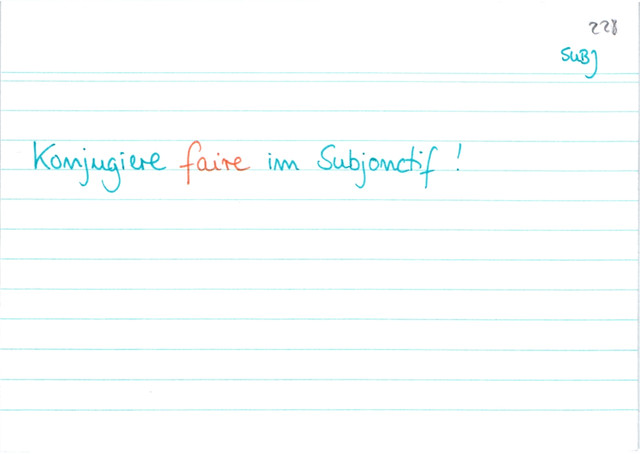 228
SUBJ
Konjugiere faire im Subjonctif !